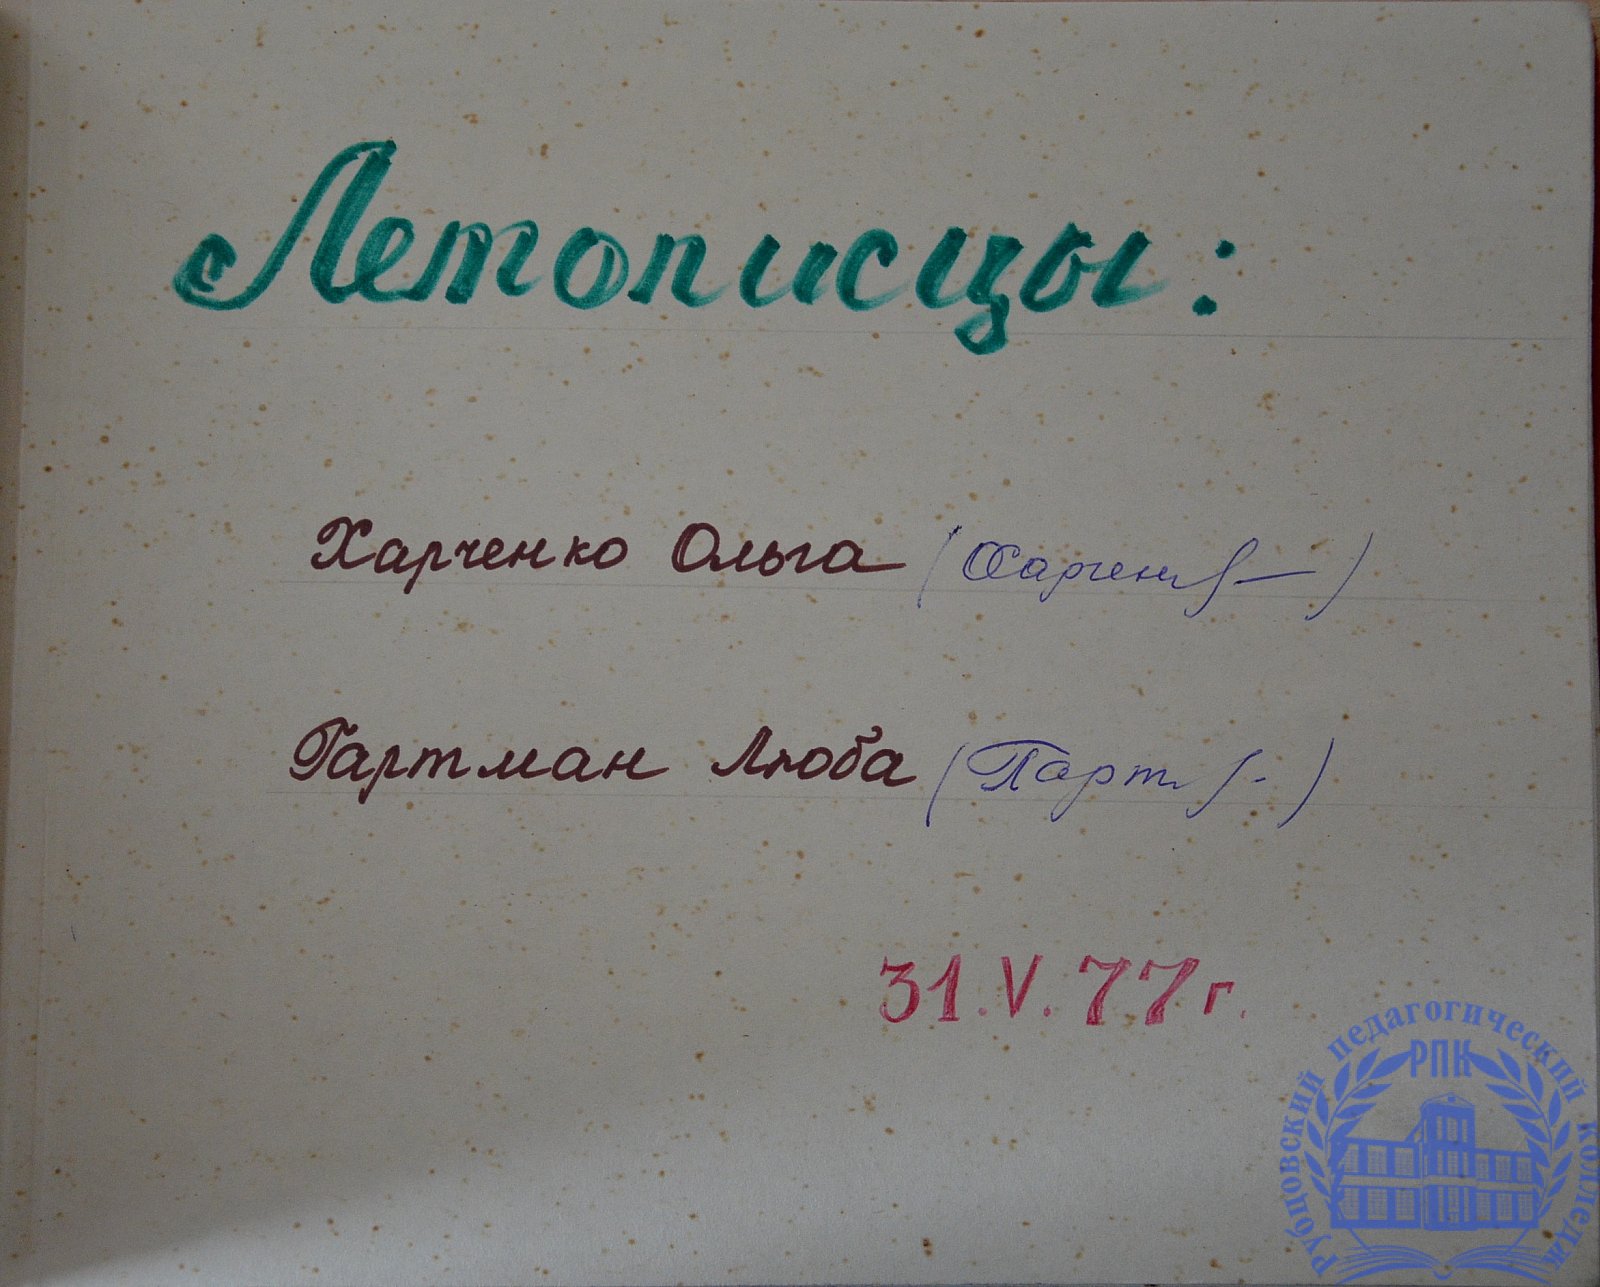 Летописцы:
Харченко Ольга (Харчен
Гартман Люба (Гарт
31.V.77г.
Рубцовский педагогический колледж
РПК